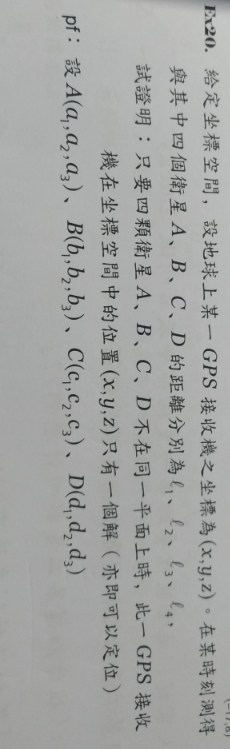 Ex20. 給定坐標空間，設地球上某一 GPS 接收機之坐標為(x,y,z)。在某時刻測得
與其中四個衛星 A、B、C、D 的距離分別為 ℓ₁、ℓ₂、ℓ₃、ℓ₄，
試證明：只要四顆衛星 A、B、C、D 不在同一平面上時，此一 GPS 接收
機在坐標空間中的位置(x,y,z)只有一個解（亦即可以定位）
pf：設 A(a₁,a₂,a₃)、B(b₁,b₂,b₃)、C(c₁,c₂,c₃)、D(d₁,d₂,d₃)